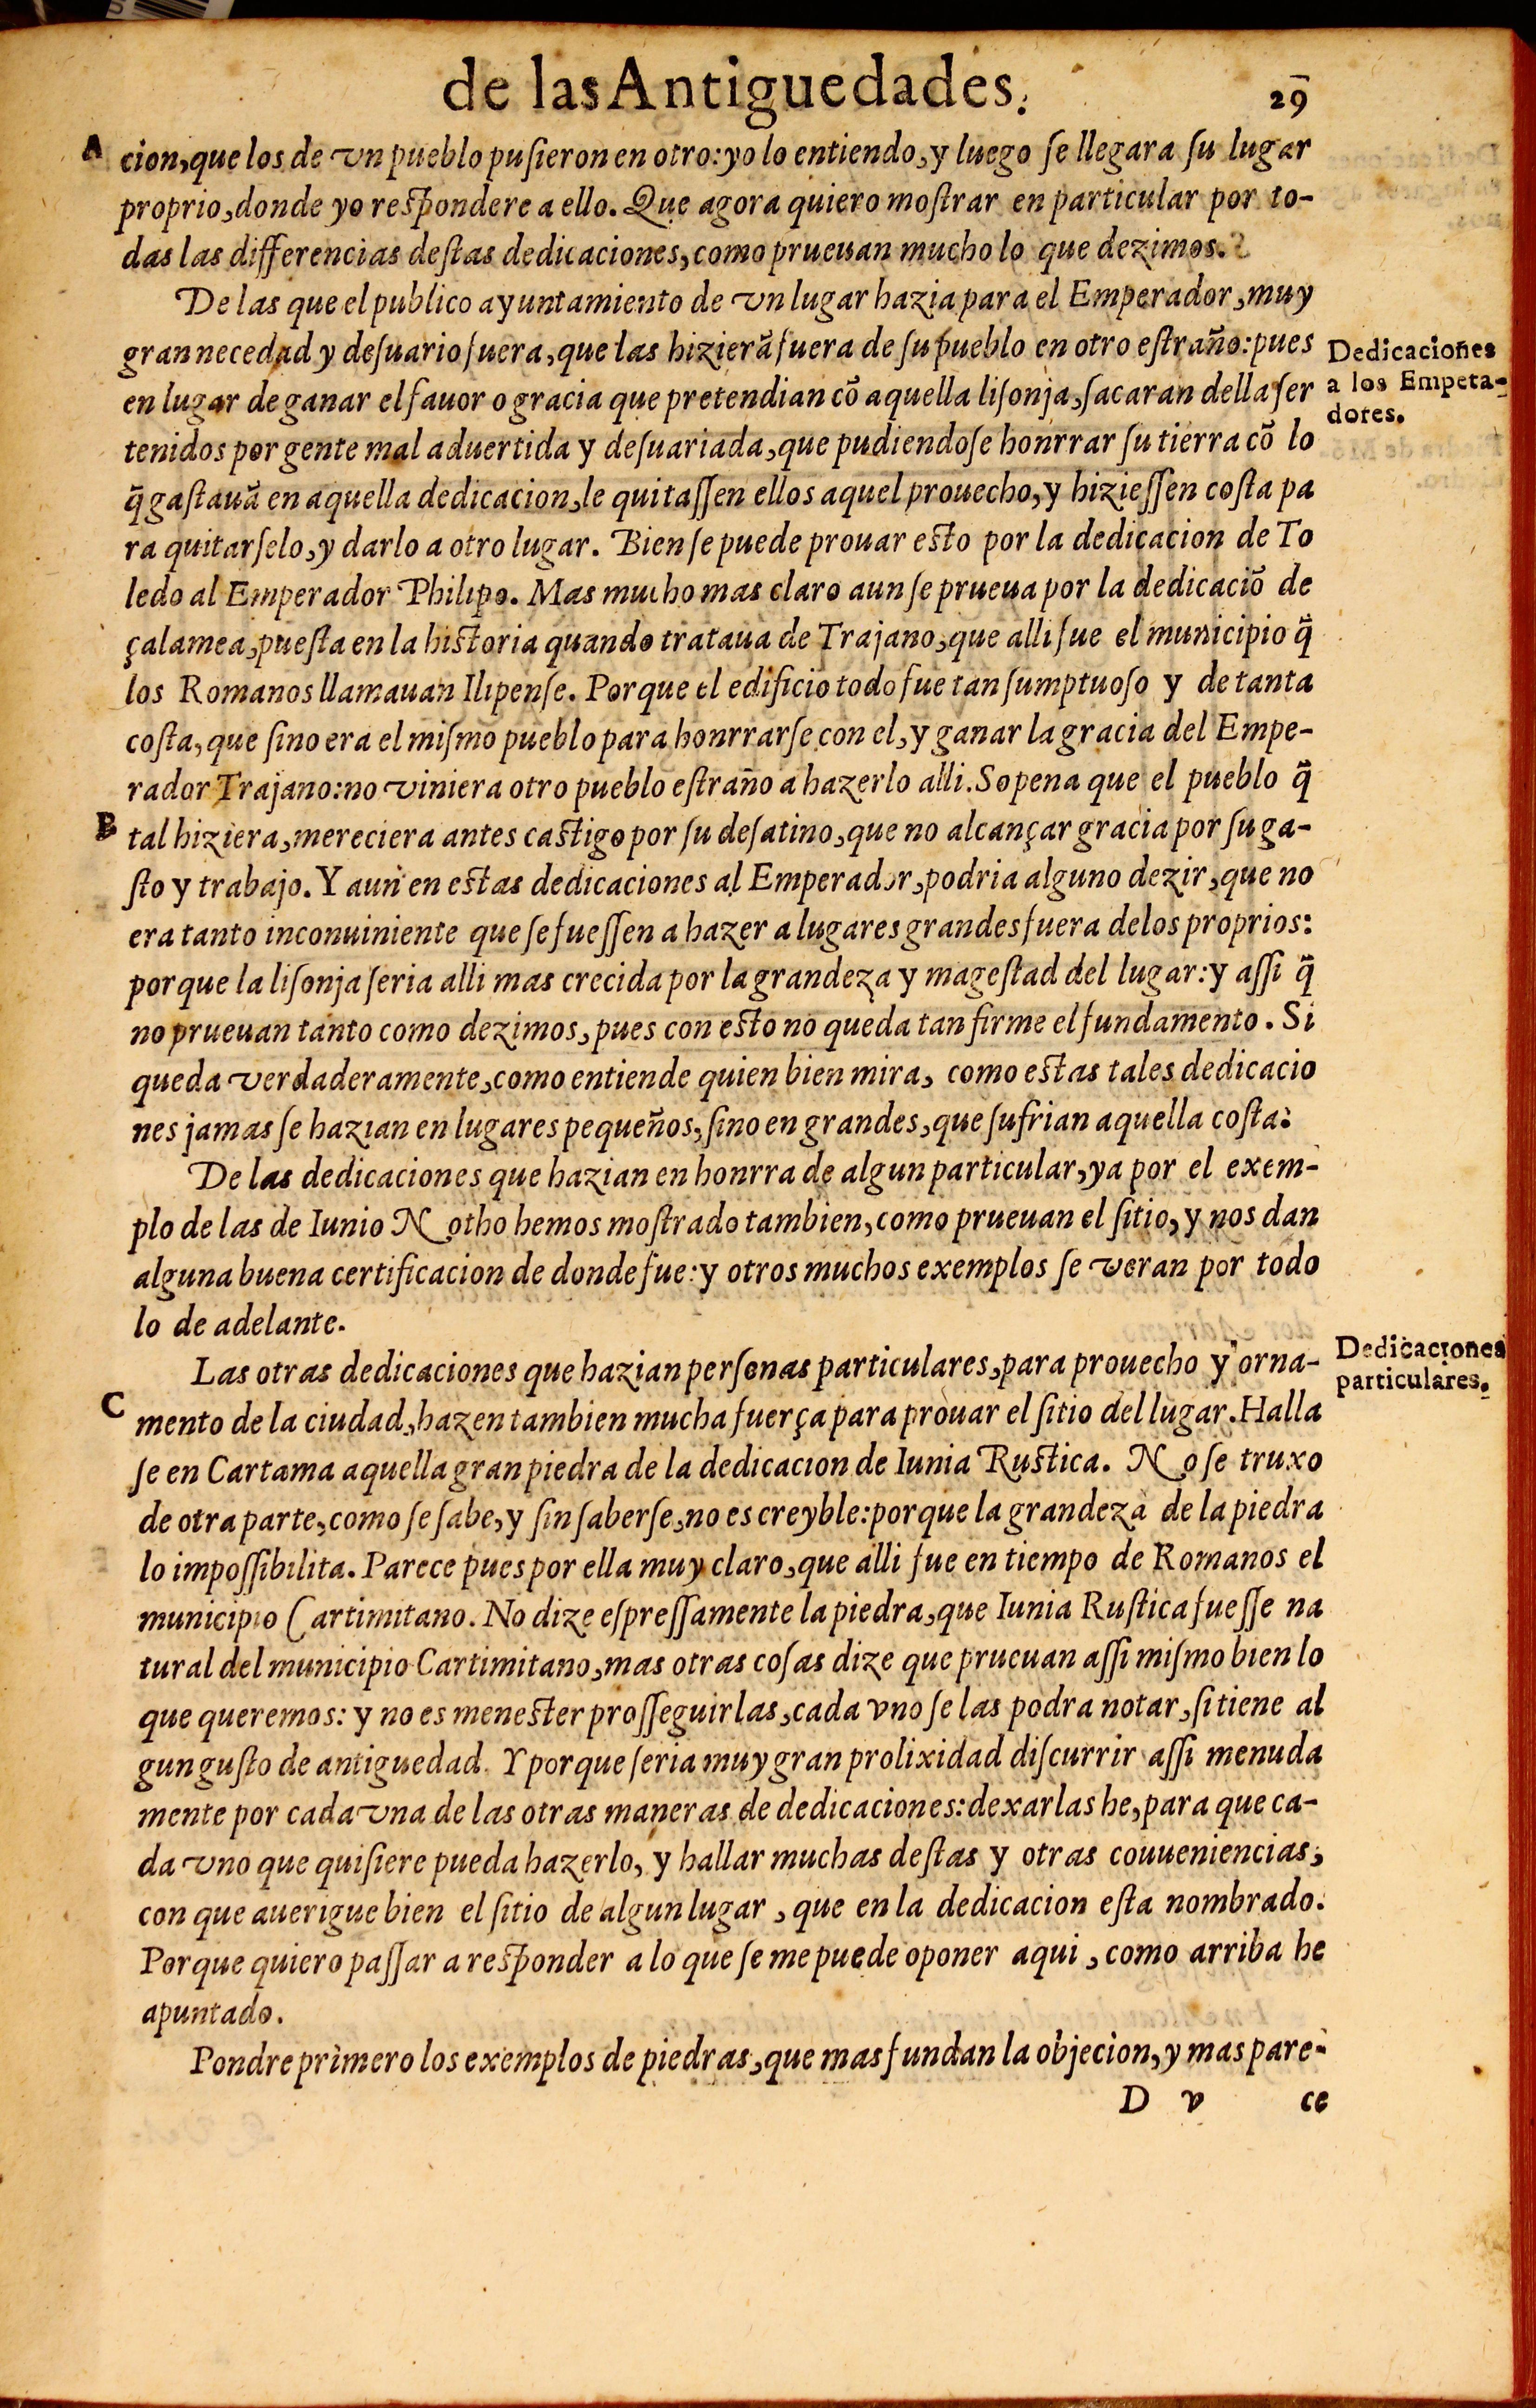 de las Antiguedades. 29
A
cion, que los de vn pueblo puſieron en otro: yo lo entiendo, y luego ſe llegara ſu lugar
proprio, donde yo reſpondere a ello. Que agora quiero moſtrar en particular por to-
das las differencias deſtas dedicaciones, como prueuan mucho lo que dezimos.
De las que el publico ayuntamiento de vn lugar hazia para el Emperador, muy
gran necedad y deſuario fuera, que las hizierã fuera de ſu pueblo en otro eſtraño: pues
Dedicaciones
a los Empeta-
dores.
en lugar de ganar el fauor o gracia que pretendian cõ aquella liſonja, ſacaran della ſer
tenidos por gente mal aduertida y deſuariada, que pudiendoſe honrrar ſu tierra cõ lo
q̃ gaſtauã en aquella dedicacion, le quitaſſen ellos aquel prouecho, y hizieſſen coſta pa
ra quitarſelo, y darlo a otro lugar. Bien ſe puede prouar eſto por la dedicacion de To
ledo al Emperador Philipo. Mas mucho mas claro aun ſe prueua por la dedicaciõ de
çalamea, pueſta en la hiſtoria quando trataua de Trajano, que alli fue el municipio q̃
los Romanos llamauan Ilipenſe. Porque el edificio todo fue tan ſumptuoſo y de tanta
coſta, que ſino era el miſmo pueblo para honrrarſe con el, y ganar la gracia del Empe-
rador Trajano: no viniera otro pueblo eſtraño a hazerlo alli. Sopena que el pueblo q̃
B
tal hiziera, mereciera antes caſtigo por ſu deſatino, que no alcançar gracia por ſu ga-
ſto y trabajo. Y aun en eſtas dedicaciones al Emperador, podria alguno dezir, que no
era tanto inconuiniente que ſe fueſſen a hazer a lugares grandes fuera de los proprios:
porque la liſonja ſeria alli mas crecida por la grandeza y mageſtad del lugar: y aſſi q̃
no prueuan tanto como dezimos, pues con eſto no queda tan firme el fundamento. Si
queda verdaderamente, como entiende quien bien mira, como eſtas tales dedicacio
nes jamas ſe hazian en lugares pequeños, ſino en grandes, que ſufrian aquella coſta.
De las dedicaciones que hazian en honrra de algun particular, ya por el exem-
plo de las de Iunio Notho hemos moſtrado tambien, como prueuan el ſitio, y nos dan
alguna buena certificacion de donde fue: y otros muchos exemplos ſe veran por todo
lo de adelante.
Las otras dedicaciones que hazian perſonas particulares, para prouecho y orna-
Dedicaciones
particulares.
C
mento de la ciudad, hazen tambien mucha fuerça para prouar el ſitio del lugar. Halla
ſe en Cartama aquella gran piedra de la dedicacion de Iunia Ruſtica. No ſe truxo
de otra parte, como ſe ſabe, y ſin ſaberſe, no es creyble: porque la grandeza de la piedra
lo impoſſibilita. Parece pues por ella muy claro, que alli fue en tiempo de Romanos el
municipio Cartimitano. No dize eſpreſſamente la piedra, que Iunia Ruſtica fueſſe na
tural del municipio Cartimitano, mas otras coſas dize que prueuan aſſi miſmo bien lo
que queremos: y no es meneſter proſſeguirlas, cada vno ſe las podra notar, ſi tiene al
gun guſto de antiguedad. Y porque ſeria muy gran prolixidad diſcurrir aſſi menuda
mente por cada vna de las otras maneras de dedicaciones: dexarlas he, para que ca-
da vno que quiſiere pueda hazerlo, y hallar muchas deſtas y otras couueniencias,
con que auerigue bien el ſitio de algun lugar, que en la dedicacion eſta nombrado.
Porque quiero paſſar a reſponder a lo que ſe me puede oponer aqui, como arriba he
apuntado.
Pondre primero los exemplos de piedras, que mas fundan la objecion, y mas pare-
D v ce